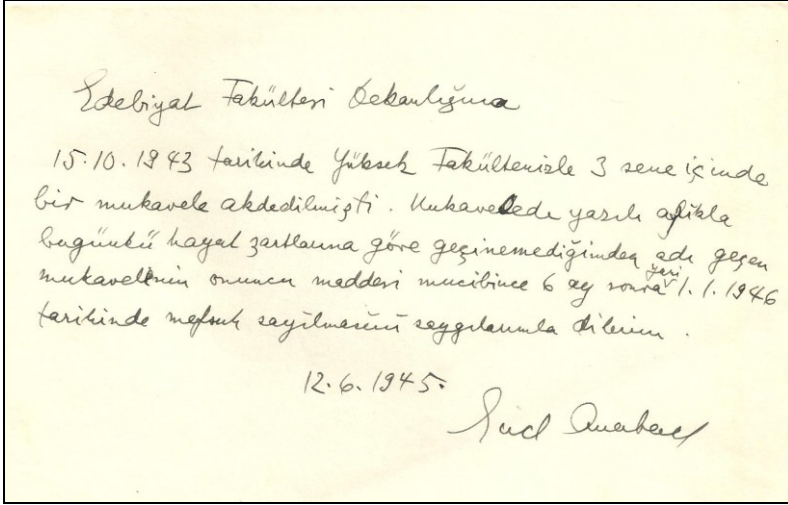 Edebiyat Fakültesi Dekanlığına
15.10.1943 tarihinde Yüksek Fakültenizle 3 sene içinde
bir mukavele akdedilmişti. Mukavelede yazılı aylıkla
bugünkü hayat şartlarına göre geçinemediğimden adı geçen
mukavelenin onuncu maddesi mucibince 6 ay sonra yani 1.1.1946
tarihinde mefsuh sayılmasını saygılarımla dilerim.
12.6.1945.
Erich Auerbach